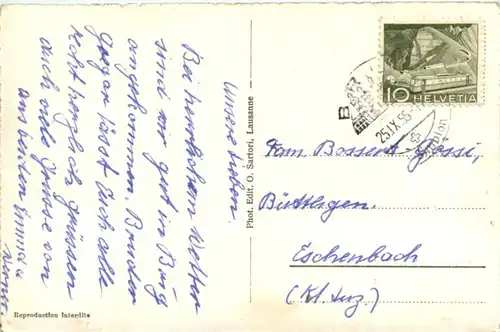 Unsere Lieben.
Bei herrlichem Wetter
sind wir gut in Burg
angekommen. Bruder
Gregor lässt Euch alle
recht herzlich grüssen
auch viele Grüsse von
aus beiden Emma &
Werner
Reproduction Interdite
Phot. Edit. O. Sartori, Lausanne
10 HELVETIA
25.IX.55
Fam. Bossert-Gossi,
Büttligen.
Eschenbach
(Kt. Luz.)